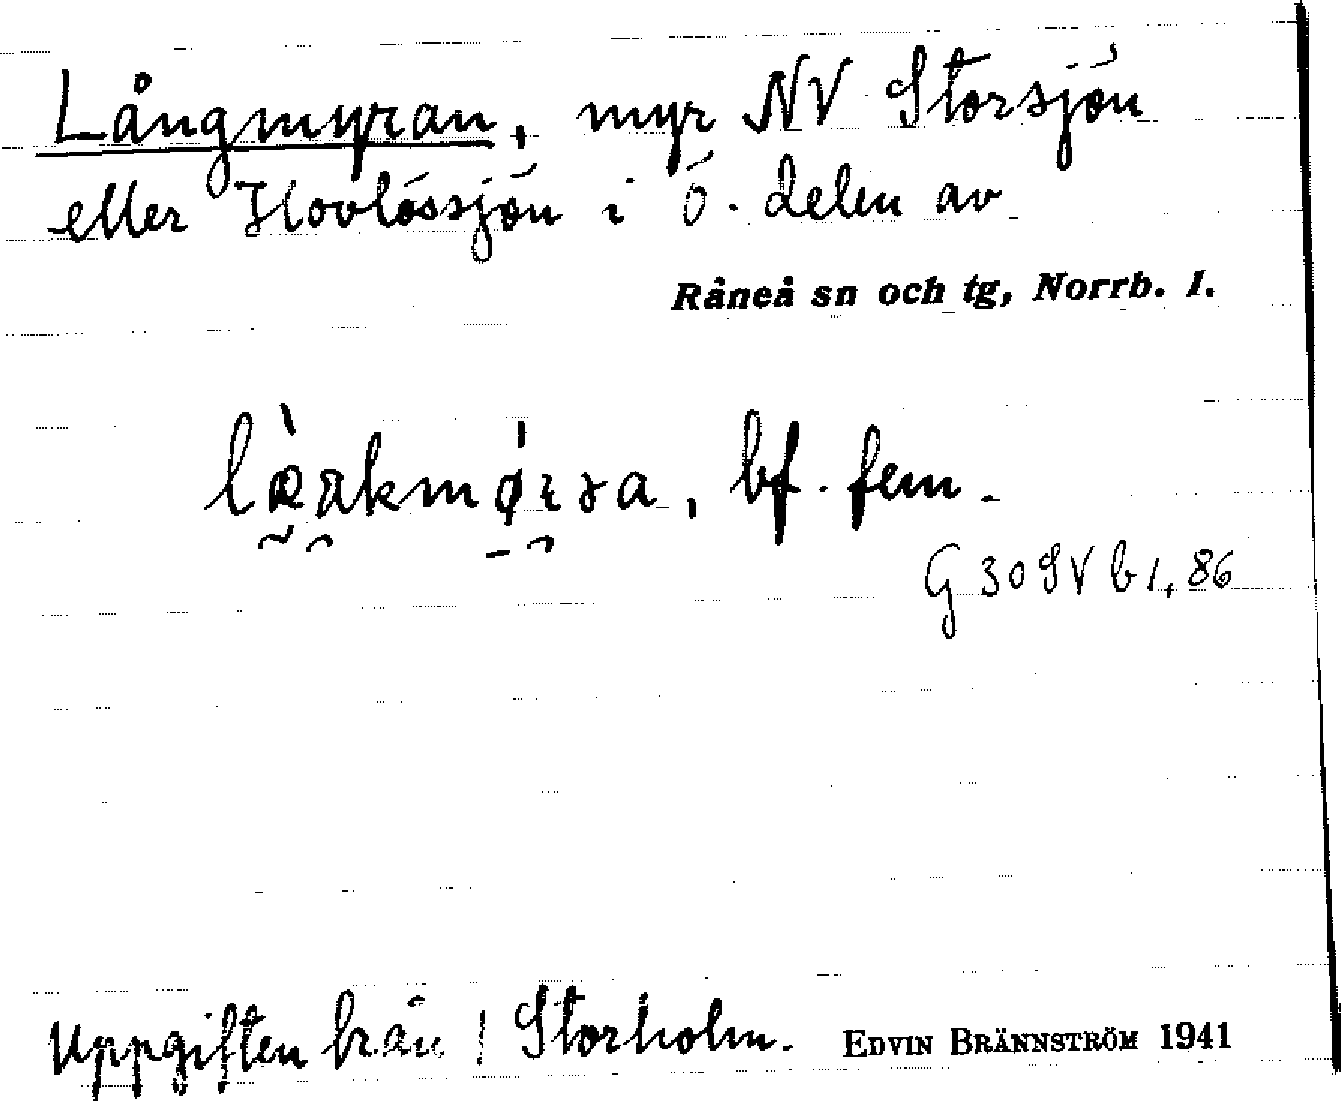 Långmyran, myr NV Storsjön
eller Hovlössjön i ö. delen av
Råneå sn och tg, Norrb. l.
bf. fem.
G 30 SV b 1, 86
Uppgiften från Storholm. EDVIN BRÄNNSTRÖM 1941